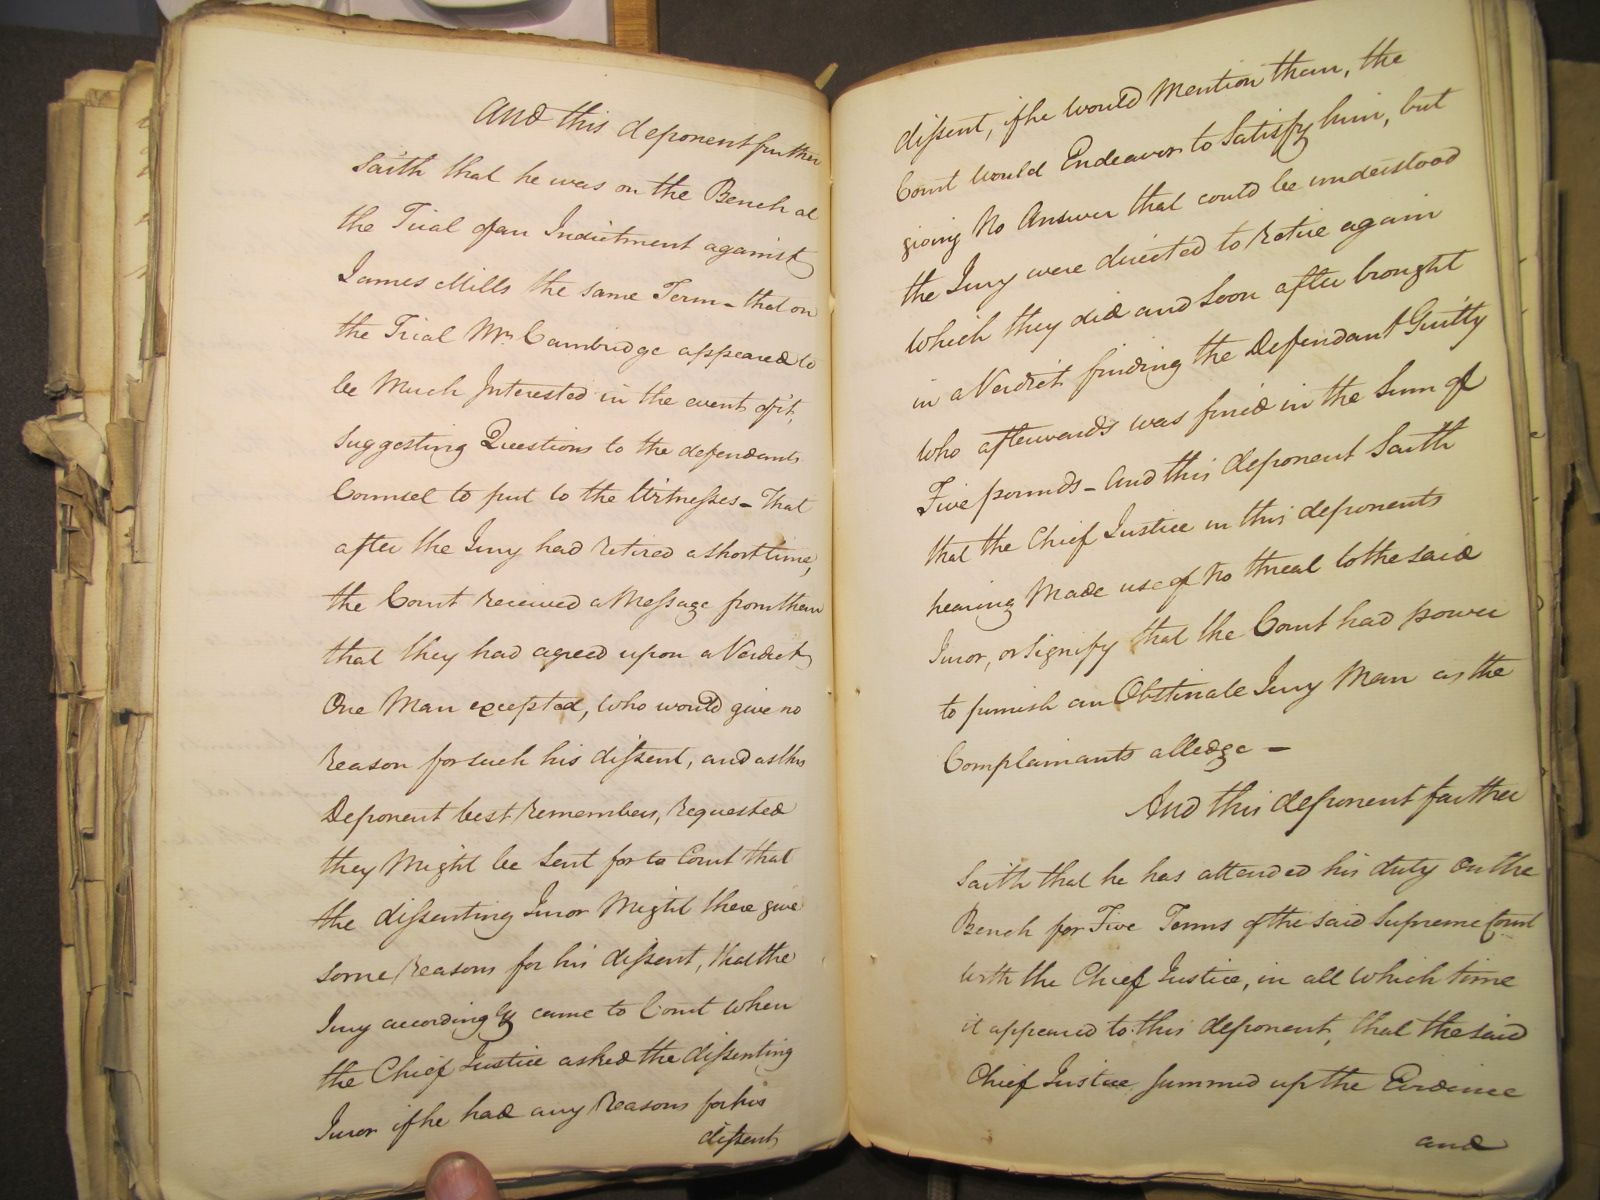 And this deponent further
Saith that he was on the Bench at
the Trial of an Indictment against
James Mills the same Term - that on
the Trial Mr. Cambridge appeared to
be Much Interested in the event of it,
Suggesting Questions to the defendants
Counsel to put to the Witnesses - That
after the Jury had retired a short time,
the Court Received a Message from them
that they had agreed upon a Verdict,
One Man excepted, Who would give no
Reason for such his dissent, and as this
Deponent best Remembers, Requested
they Might be Sent for to Court that
the dissenting Juror Might there give
some Reasons for his dissent, that the
Jury accordingly came to Court when
the Chief Justice asked the dissenting
Juror if he had any Reasons for his
dissent
dissent, if he would Mention them, the
Court would Endeavor to Satisfy him, but
giving No Answer that could be understood
the Jury were directed to Retire again
which they did and Soon after brought
in a Verdict finding the Defendant Guilty
who afterwards was fined in the Sum of
Five pounds - And this deponent Saith
that the Chief Justice in this deponents
hearing Made use of No threat to the said
Juror, or Signify that the Court had power
to punish an Obstinate Jury Man as the
Complainants alledge -
And this deponent farther
Saith that he has attended his duty on the
Bench for Five Terms of the said Supreme Court
with the Chief Justice, in all which time
it appeared to this deponent, that the said
Chief Justice Summed up the Evidence
and